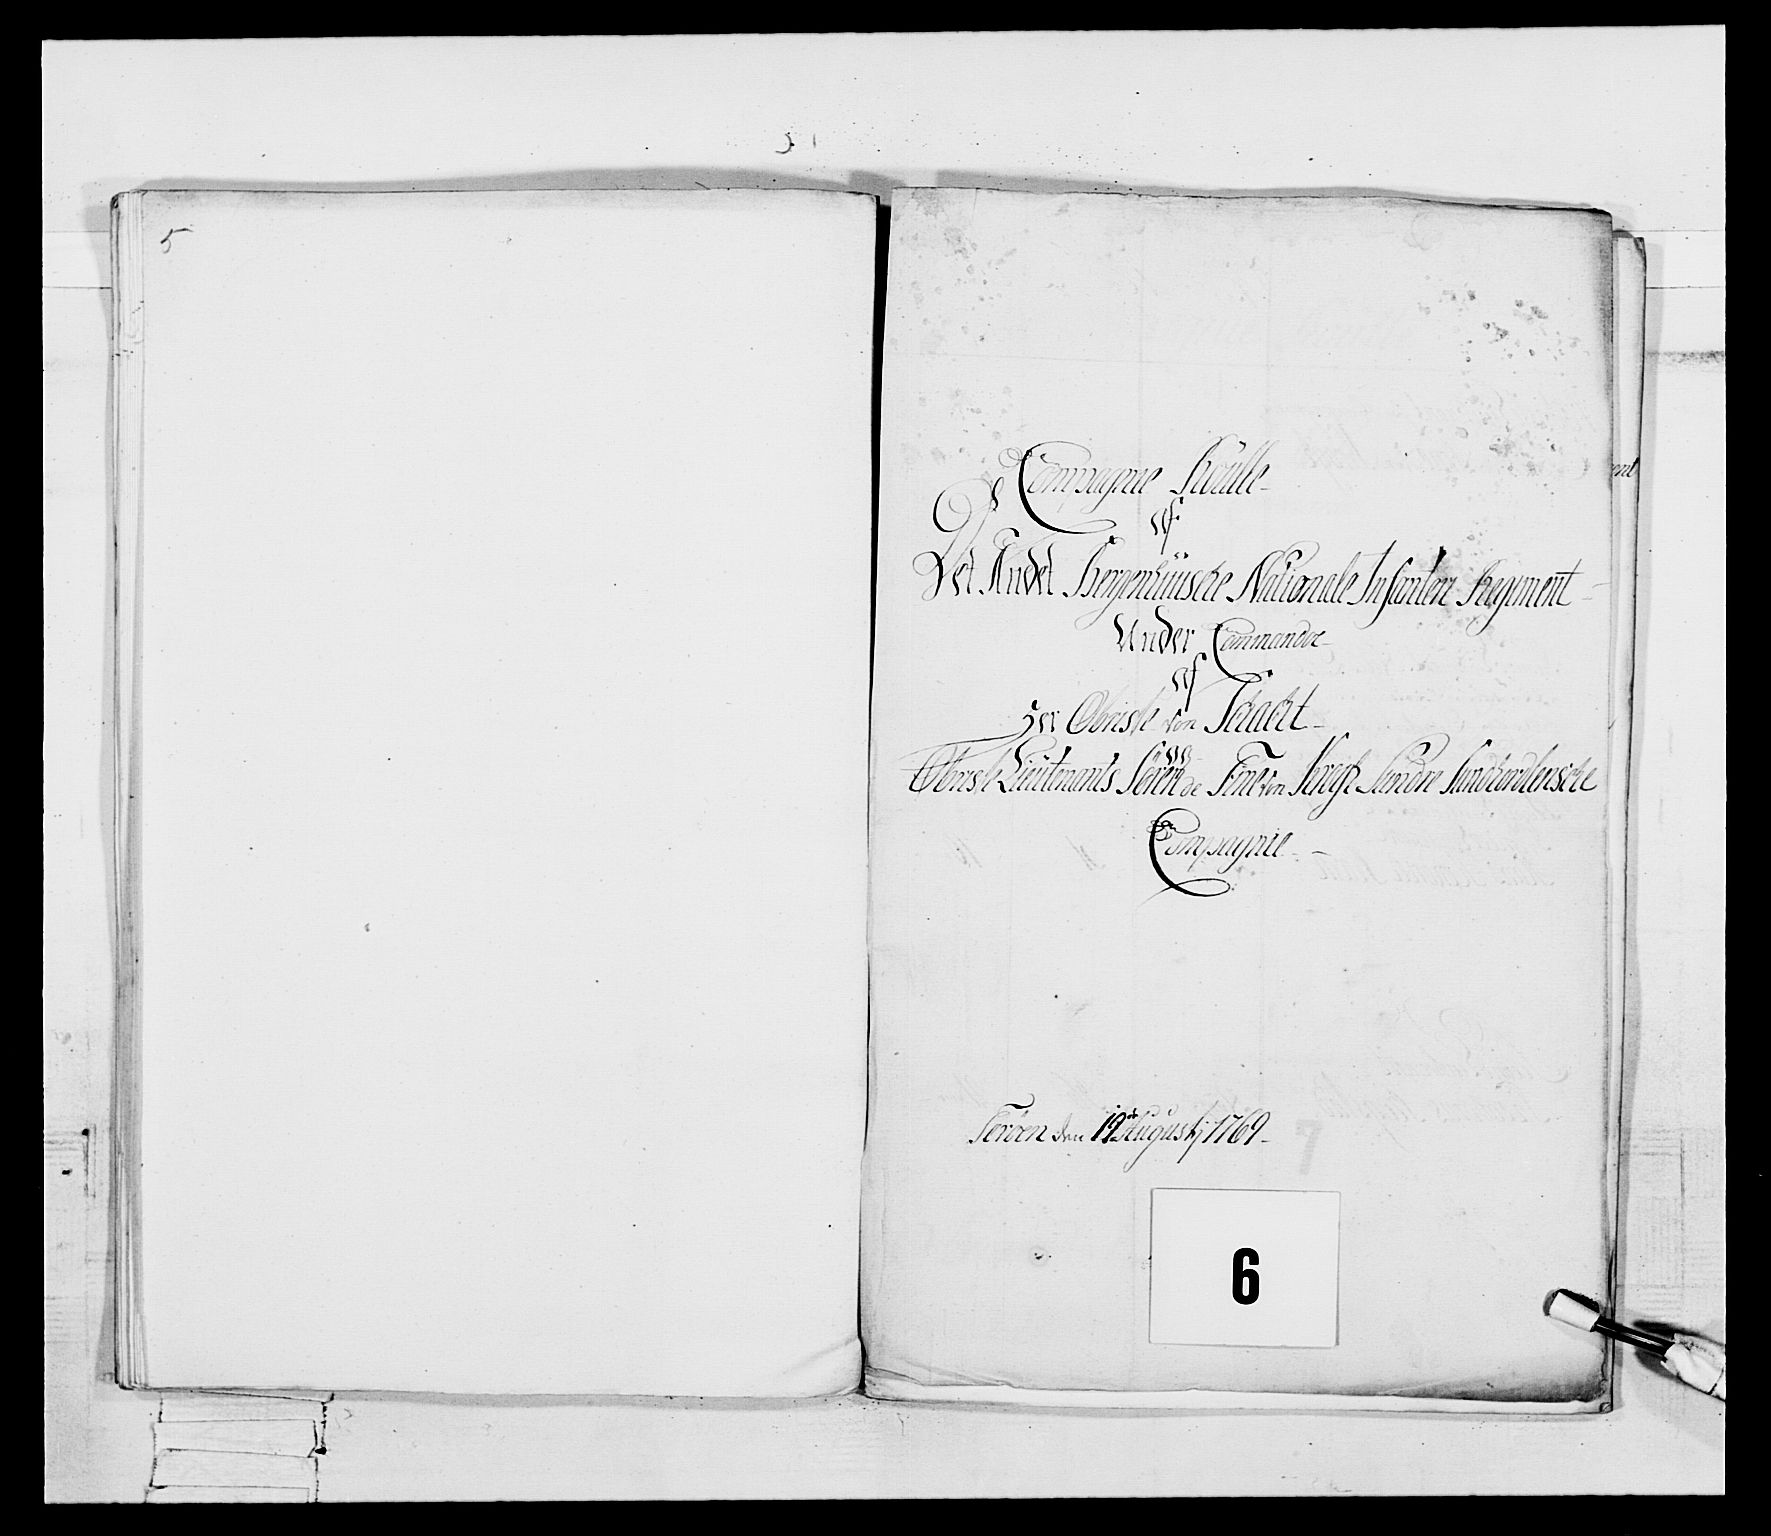 5
Compagnie Roulle
af
Det Andet Bergenhuusche Nationale Infanteri Regiment
Under Commando
af
Her Obriste von Schacht
Obriste Lieutenants Sören de Fine von Kragh Søndre Sundhordlensche
Compagnie
Terøen den 19de Augustj 1769
6
ent